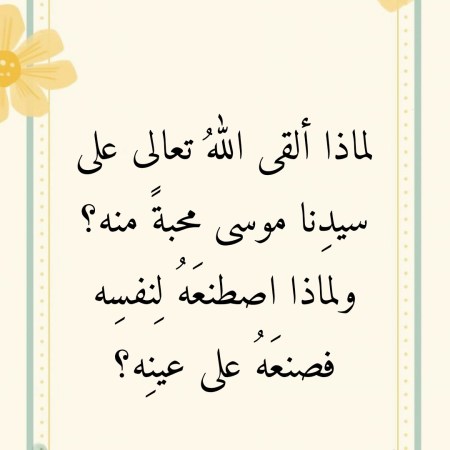 لماذا ألقى اللهُ تعالى على
سيدِنا موسى محبةً منه؟
ولماذا اصطنعَهُ لِنفسِه
فصنعَهُ على عينِه؟